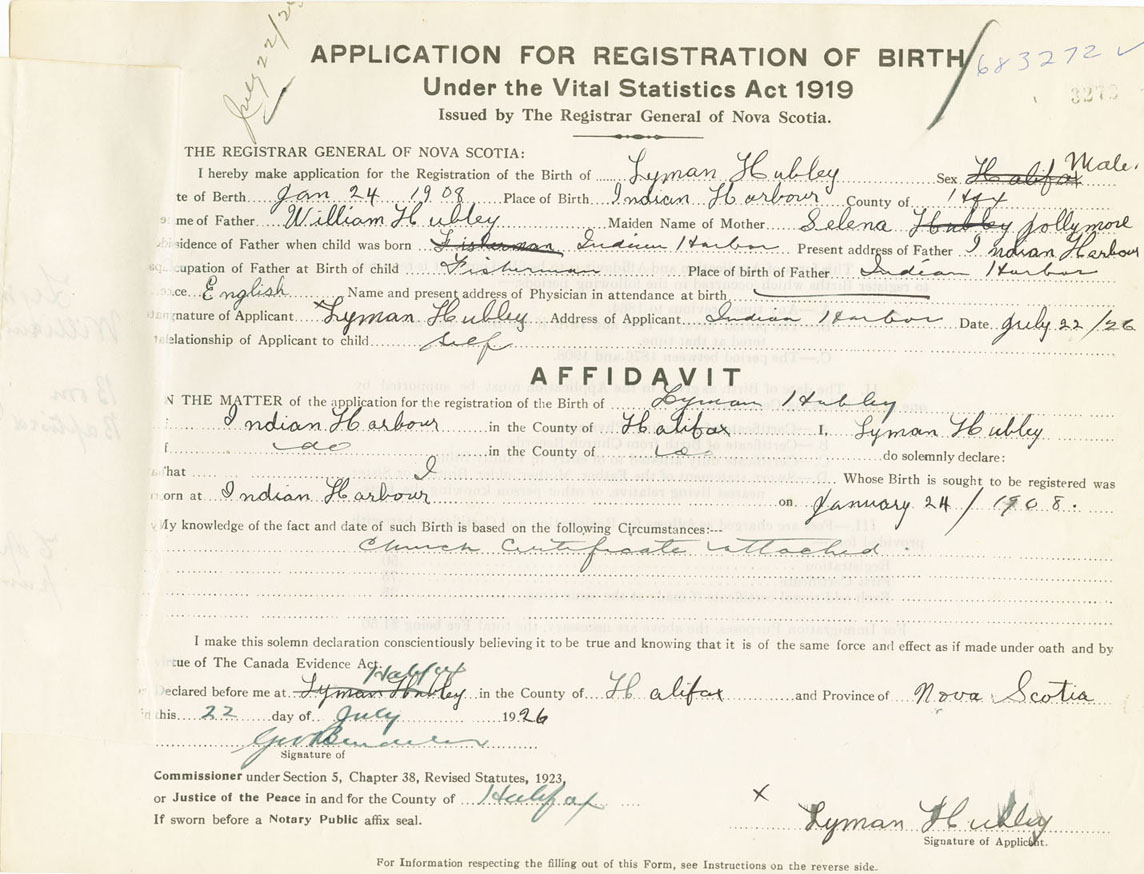 July 22/26
APPLICATION FOR REGISTRATION OF BIRTH
683272
3273
Under the Vital Statistics Act 1919
Issued by The Registrar General of Nova Scotia.
THE REGISTRAR GENERAL OF NOVA SCOTIA:
I hereby make application for the Registration of the Birth of Lyman Hubley Sex Halifax Male.
te of Berth Jan 24 1908 Place of Birth Indian Harbour County of Hfx
me of Father William Hubley Maiden Name of Mother Selena Hubley Jollymore
sidence of Father when child was born Fisherman Indian Harbor Present address of Father Indian Harbour
cupation of Father at Birth of child Fisherman Place of birth of Father Indian Harbor
ce English Name and present address of Physician in attendance at birth
gnature of Applicant x Lyman Hubley Address of Applicant Indian Harbor Date July 22/26
elationship of Applicant to child self
AFFIDAVIT
N THE MATTER of the application for the registration of the Birth of Lyman Hubley
Indian Harbour in the County of Halifax I, Lyman Hubley
f do in the County of do do solemnly declare:
hat I Whose Birth is sought to be registered was
orn at Indian Harbour on January 24/1908.
My knowledge of the fact and date of such Birth is based on the following Circumstances:---
Church Certificate attached.
I make this solemn declaration conscientiously believing it to be true and knowing that it is of the same force and effect as if made under oath and by
irtue of The Canada Evidence Act.
Halifax
Declared before me at Lyman Hubley in the County of Halifax and Province of Nova Scotia
this 22 day of July 1926
Signature of
Commissioner under Section 5, Chapter 38, Revised Statutes, 1923,
or Justice of the Peace in and for the County of Halifax
If sworn before a Notary Public affix seal.
x Lyman Hubley
Signature of Applicant.
For Information respecting the filling out of this Form, see Instructions on the reverse side.